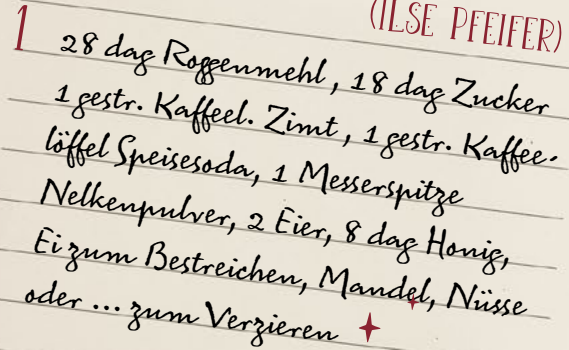 (ILSE PFEIFER)
1 28 dag Roggenmehl, 18 dag Zucker
1 gestr. Kaffeel. Zimt, 1 gestr. Kaffee-
löffel Speisesoda, 1 Messerspitze
Nelkenpulver, 2 Eier, 8 dag Honig,
Ei zum Bestreichen, Mandel, Nüsse
oder ... zum Verzieren